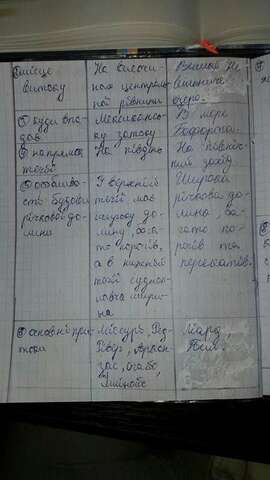 місце
витоку
На височи-
ні централь-
ної рівнини
Велике Не-
вільниче
озеро
куди впа-
дає
Мексикансь-
ку затоку
В море
Бофорта
напрямок
течії
На південь
На північ-
ний захід
особливо-
сті будови
річкової до-
лини
У верхній
течії має
широку до-
лину, бага-
то порогів,
а в нижній
течії судно-
плавна шири-
на
Широка
річкова до-
лина, ба-
гато по-
рогів та
перекатів.
основні при-
токи
Міссурі, Ред-
Рівер, Аркан-
зас, Огайо,
Іллінойс
Ліард,
Піл.